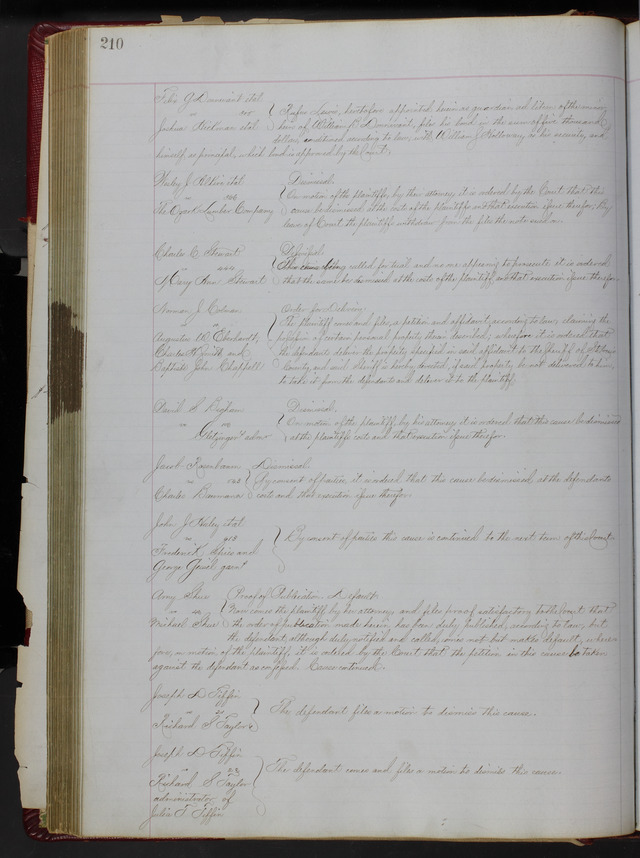 210
et al
vs Rufus heretofore appointed herein as guardian ad litem of the minor
Joshua et al heirs of William files his bond in the sum of five thousand
dollars conditioned according to law, with William J. Holloway as his security, and
himself, as principal, which bond is approved by the Court.
Wesley J. et al Dismissal.
vs On motion of the plaintiffs, by their attorney, it is ordered by the Court that this
The Ozark Lumber Company cause be dismissed at the costs of the plaintiffs and that execution issue therefor. By
leave of Court the plaintiffs withdraw from the files the note sued on.
Charles E. Stewart Dismissal.
vs This cause being called for trial and no one appearing to prosecute it is ordered
Mary Ann Stewart that the same be dismissed at the costs of the plaintiff and that execution issue therefor.
Norman J. Colman Order for Delivery.
vs The plaintiff comes and files a petition and affidavit, according to law, claiming the
Augustus W. Eberhardt, possession of certain personal property therein described; wherefore it is ordered that
Charles Smith and the defendants deliver the property specified in said affidavit to the Sheriff of St. Louis
Baptiste John Chappell County, and said Sheriff is hereby directed, if said property be not delivered to him,
to take it from the defendants and deliver it to the plaintiff.
David S. Bigham Dismissal.
vs On motion of the plaintiff, by his attorney it is ordered that this cause be dismissed
admr at the plaintiff's costs and that execution issue therefor.
Jacob Dismissal
vs By consent of parties it is ordered that this cause be dismissed at the defendants
Charles costs and that execution issue therefor.
John J. et al
vs By consent of parties this cause is continued to the next term of this Court.
Frederick and
George garnt
Amy Shea Proof of Publication. Default.
vs Now comes the plaintiff by her attorney and files proof satisfactory to the Court that
Michael Shea the order of publication made herein has been duly published, according to law, but
the defendant although duly notified and called, comes not but makes default, where-
fore, on motion of the plaintiff, it is ordered by the Court that the petition in this cause be taken
against the defendant as confessed. Cause continued.
Joseph D. Tiffin
vs The defendant files a motion to dismiss this cause.
Richard S. Taylor
Joseph D. Tiffin
vs The defendant comes and files a motion to dismiss this cause.
Richard S. Taylor
administrator of
Julia T. Tiffin